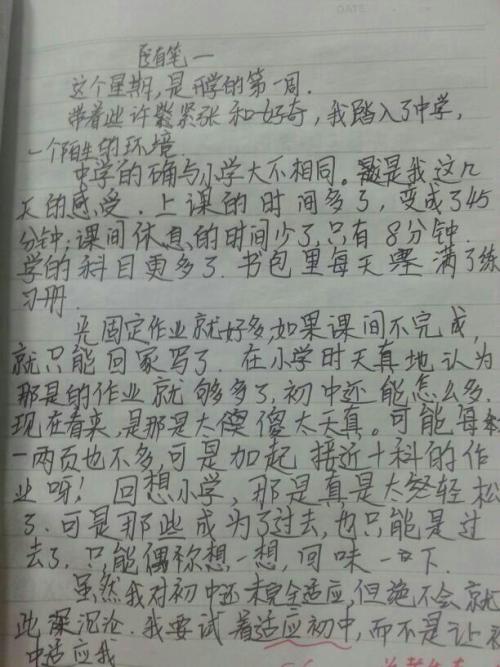 随笔一
这个星期,是开学的第一周.
带着些许紧张和好奇,我踏入了中学,
一个陌生的环境.
中学的确与小学大不相同。是我这几
天的感受.上课的时间多了,变成了45
分钟;课间休息的时间少了,只有8分钟.
学的科目更多了.书包里每天 满了练
习册.
光固定作业就好多,如果课间不完成,
就只能回家写了.在小学时天真地认为
那是的作业就够多了,初中还能怎么多.
现在看来,是那是太傻太天真。可能每本
一两页也不多,可是加起 接近十科的作
业呀!回想小学,那是真是太轻松
了.可是那些成为了过去,也只能是过
去了.只能偶尔想一想,回味一下.
虽然我对初中还未完全适应,但绝不会就
此沉沦.我要试着适应初中,而不是让初
中适应我